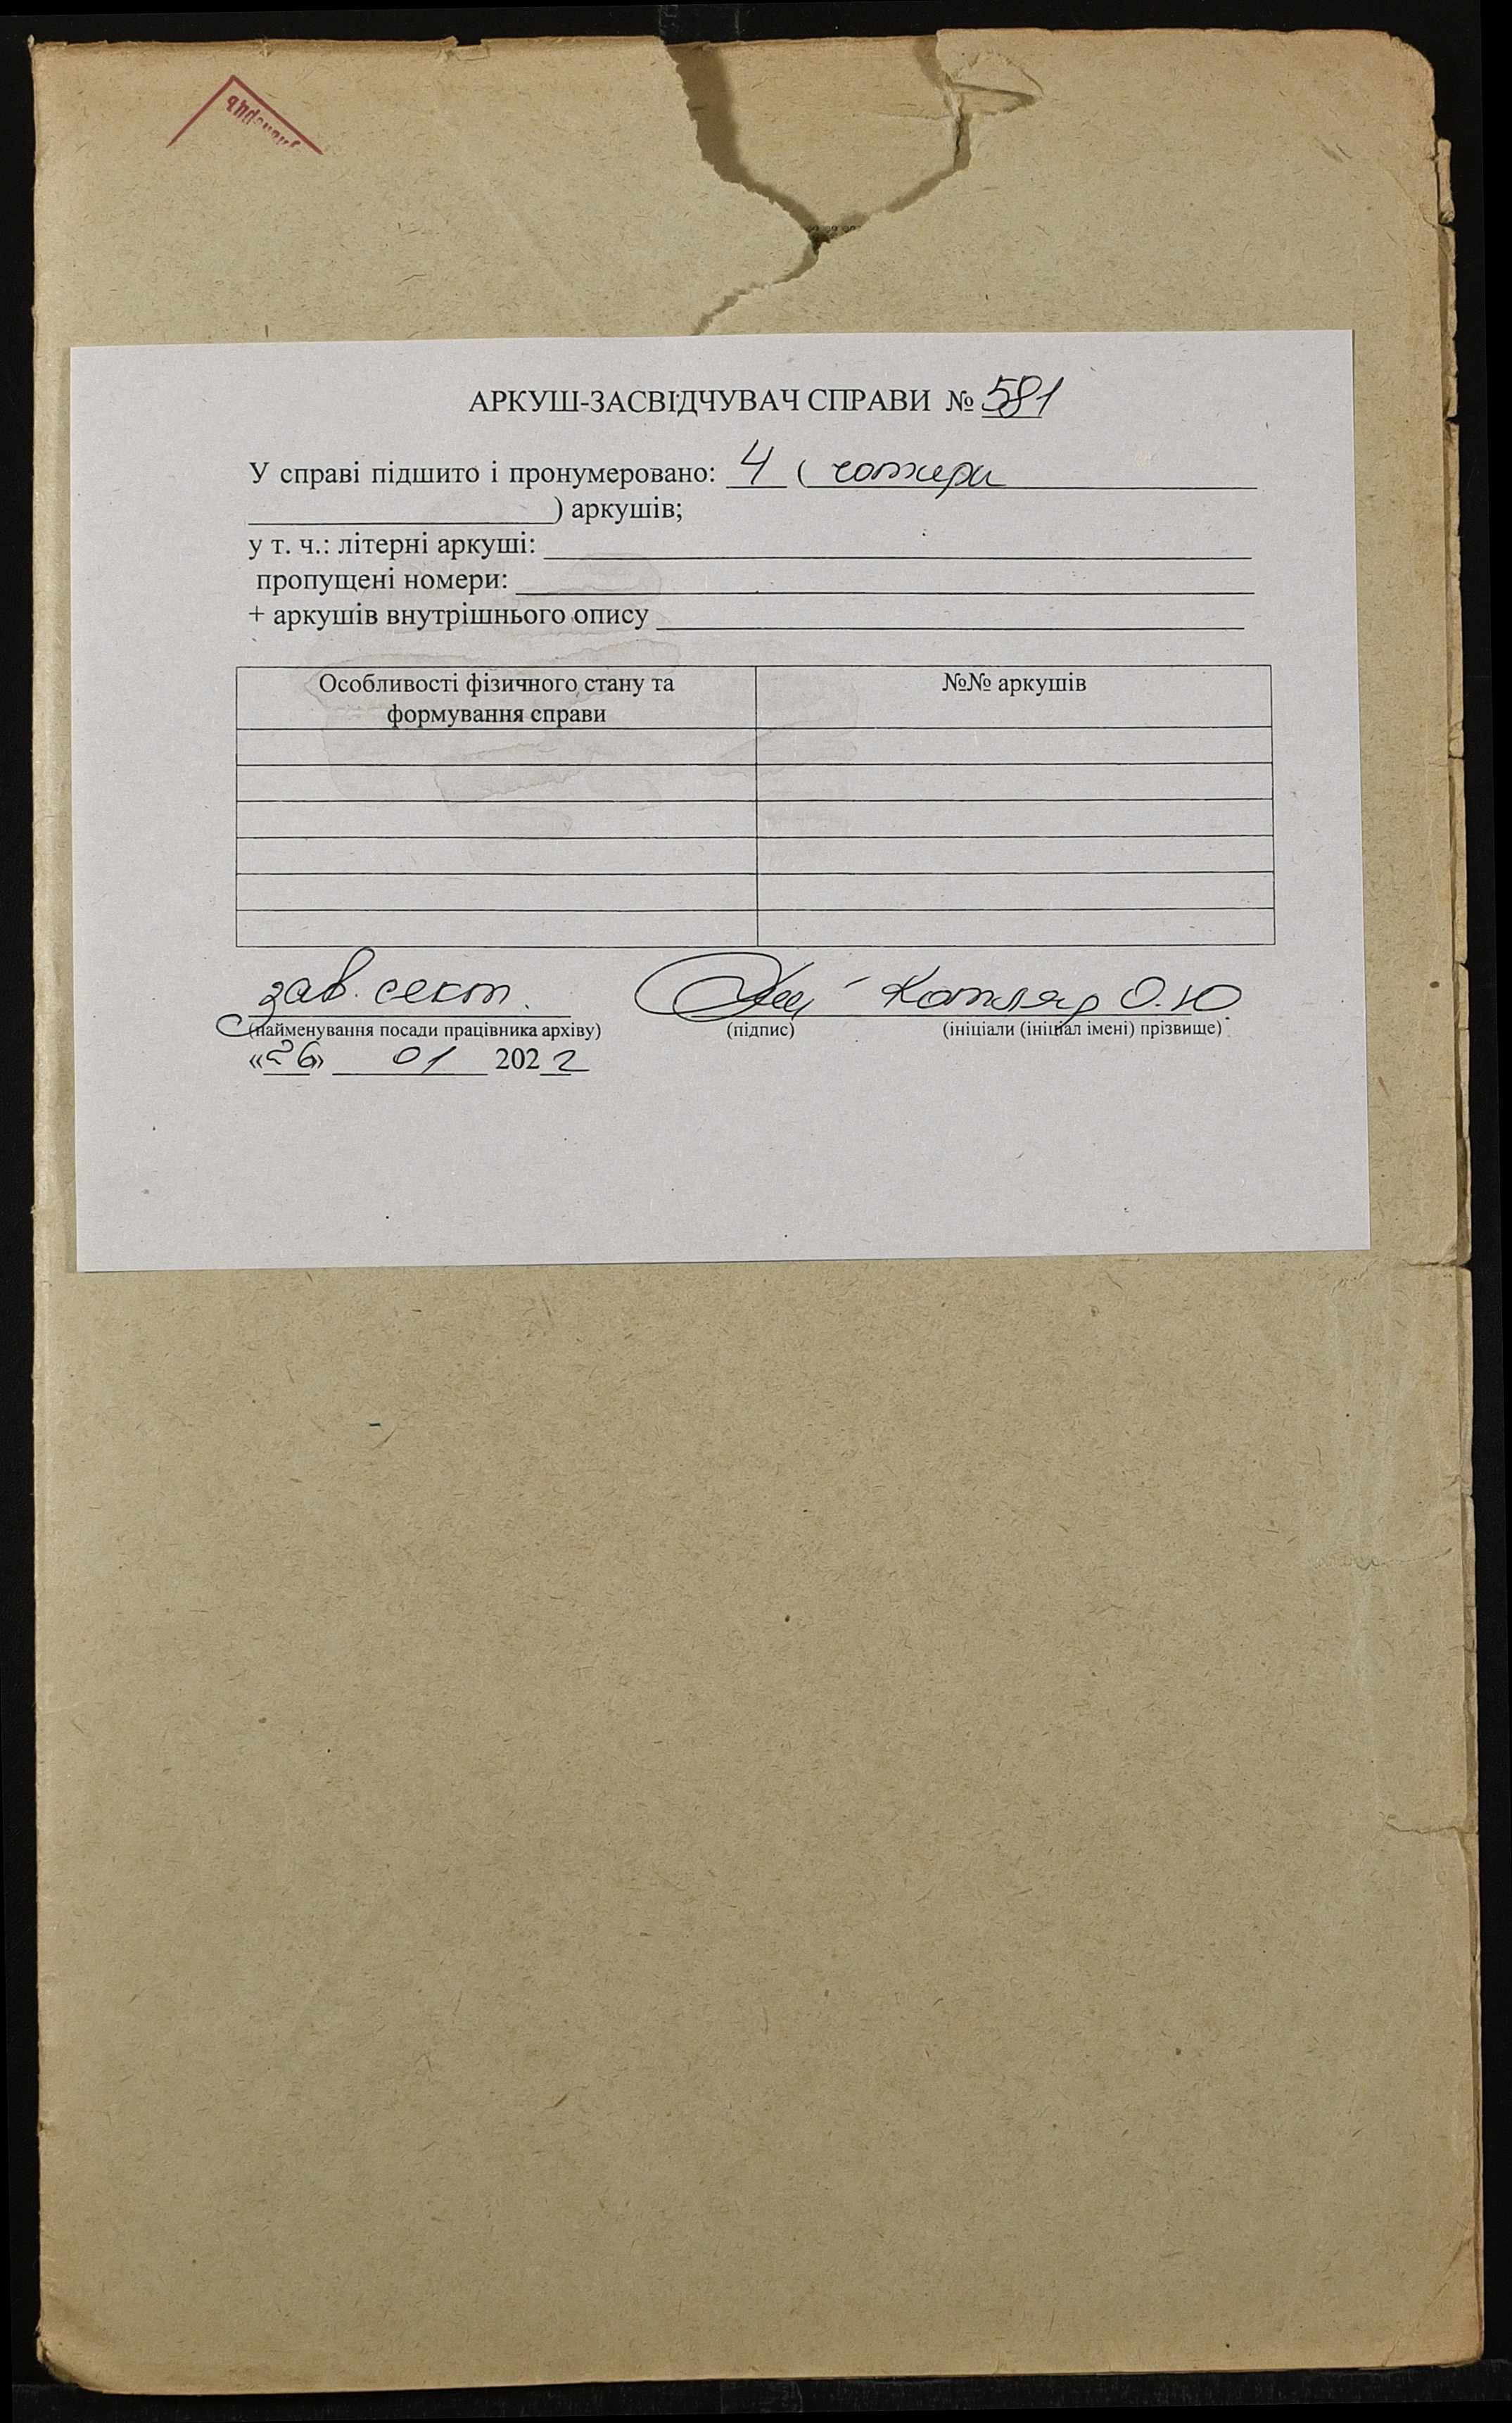 АРКУШ-ЗАСВІДЧУВАЧ СПРАВИ № 581
У справі підшито і пронумеровано: 4 ( чотири
) аркушів;
у т. ч.: літерні аркуші:
пропущені номери:
+ аркушів внутрішнього опису
Особливості фізичного стану та формування справи №№ аркушів
зав. сект. Котляр О.Ю
(найменування посади працівника архіву) (підпис) (ініціали (ініціал імені) прізвище)
«26» 01 2022